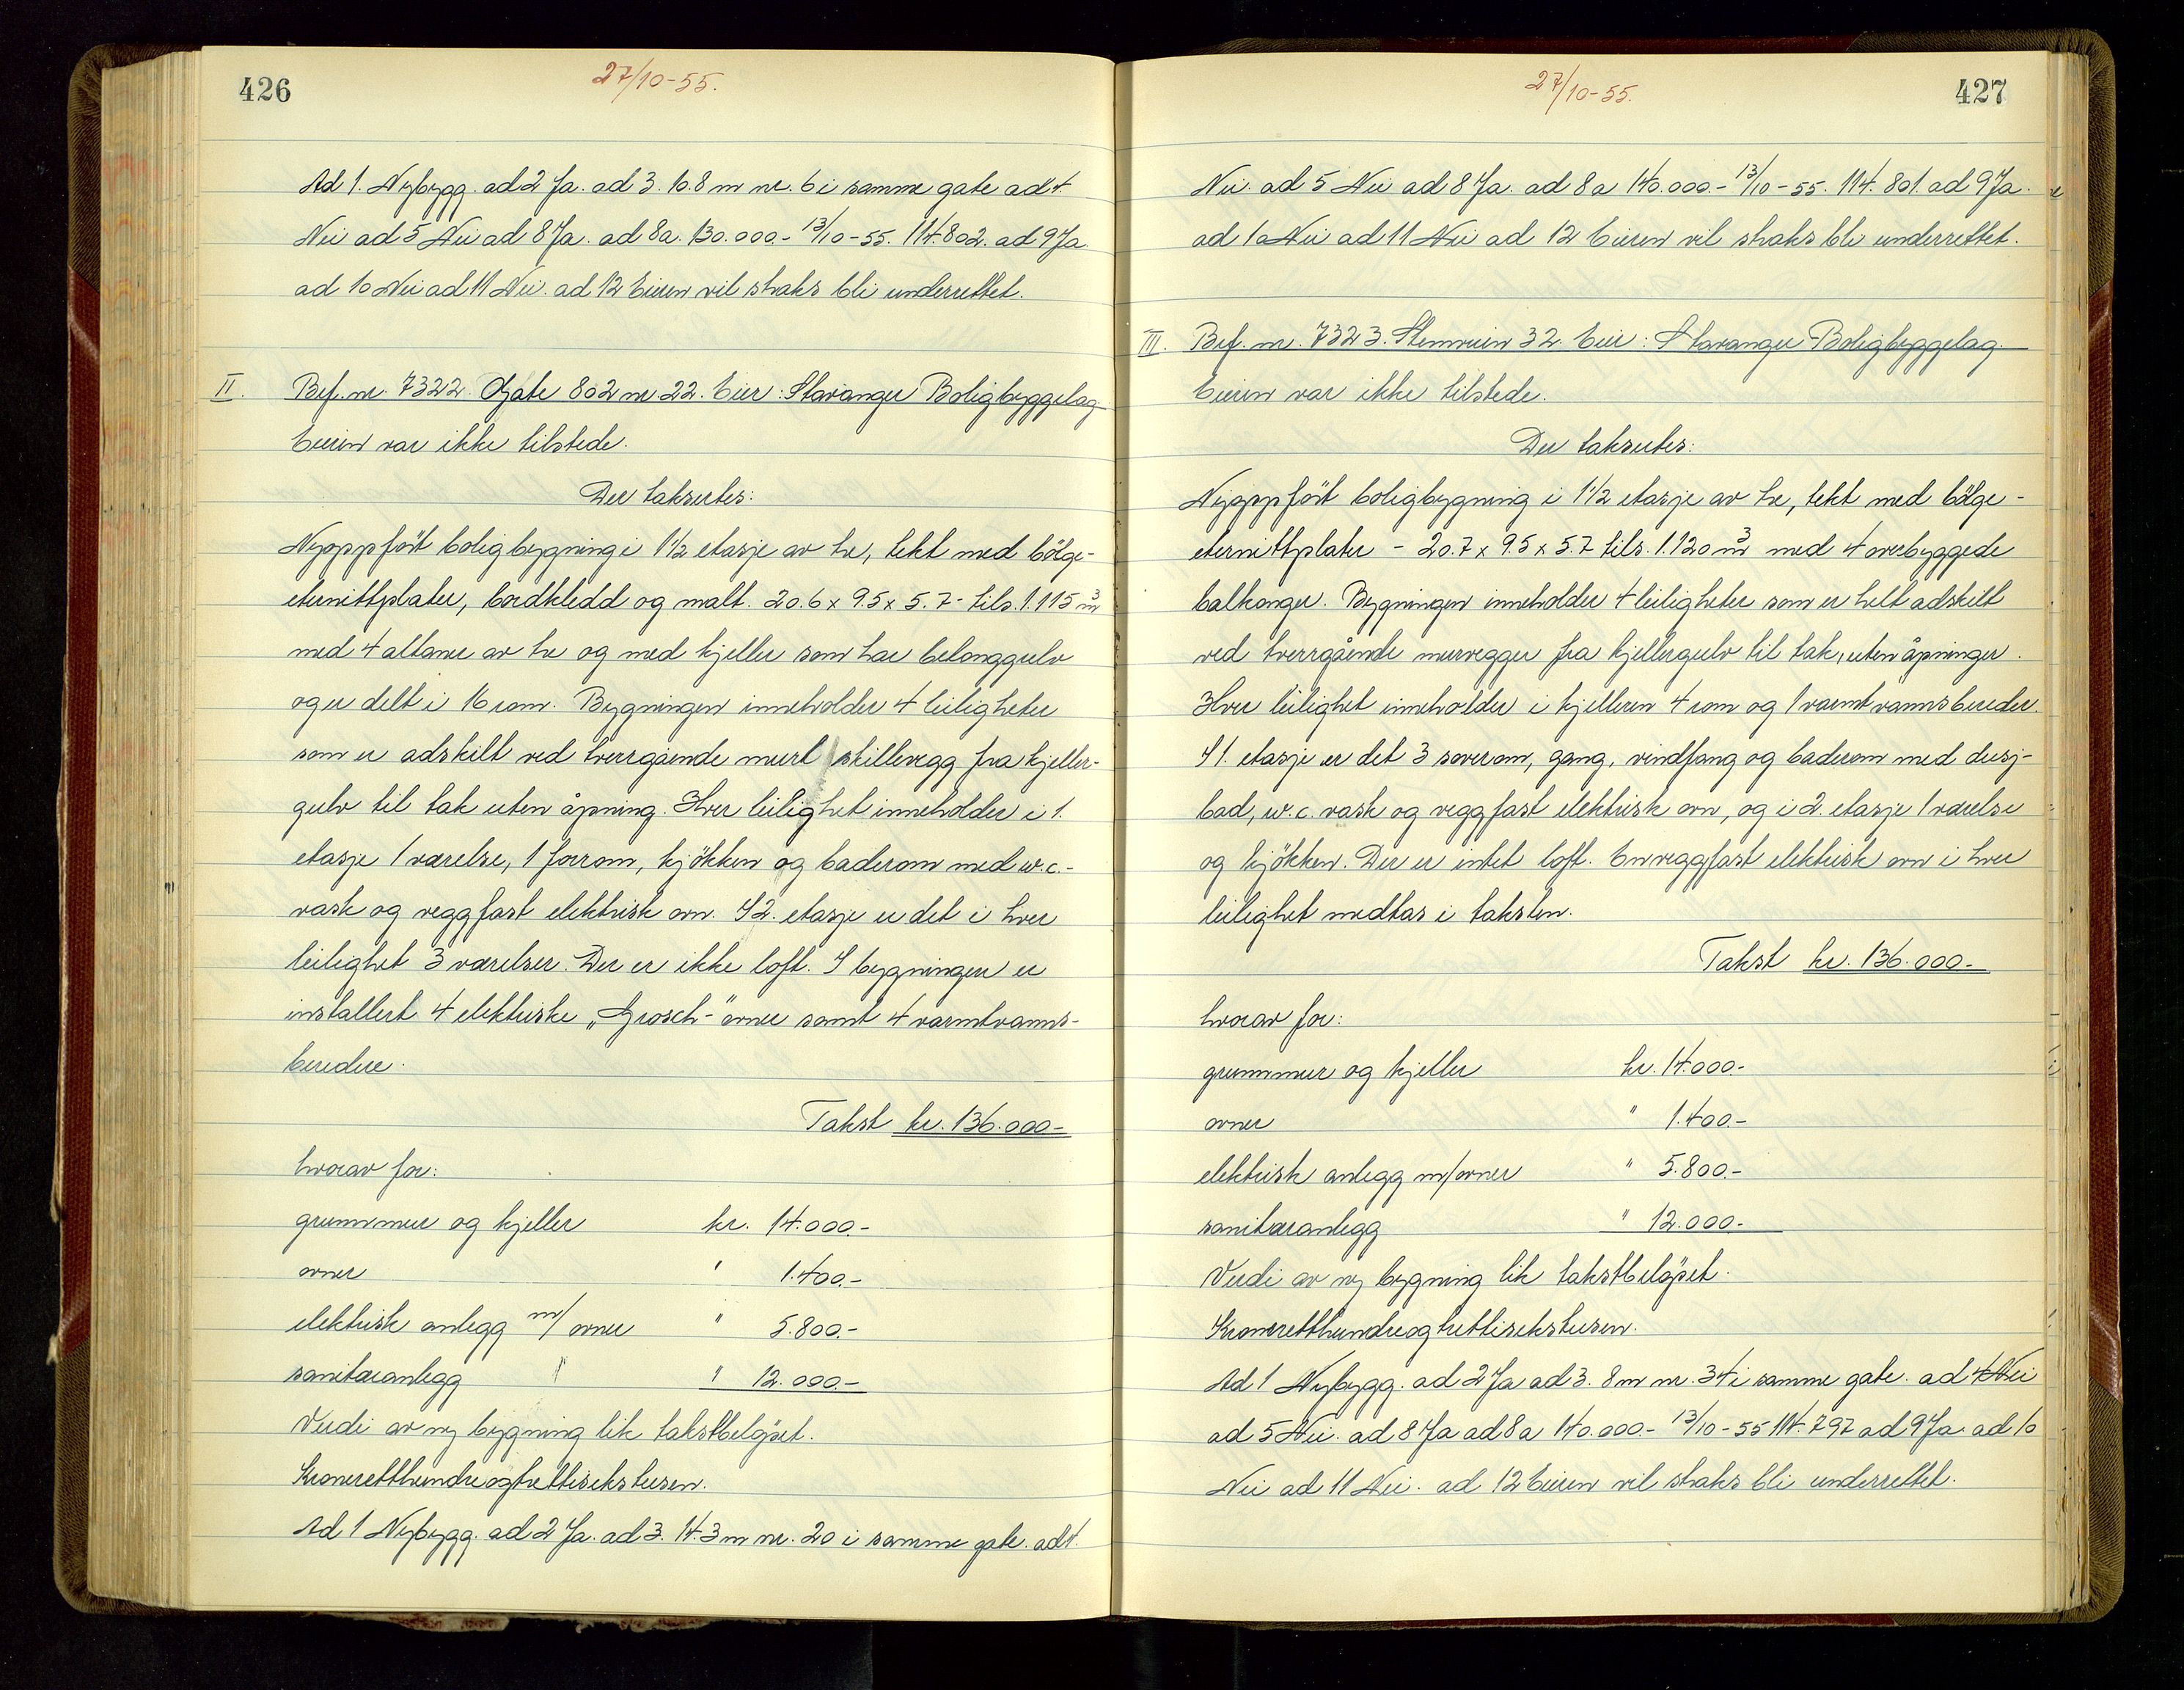 426
27/10-55.
Ad 1. Nybygg. ad 2 Ja. ad 3. 10.8 m nr. 6 i samme gate ad 4.
Nei ad 5 Nei ad 8 Ja. ad 8a. 130.000.- 13/10-55. 114.802. ad 9 Ja
ad 10 Nei ad 11 Nei. ad 12 Eieren vil straks bli underrettet.
II. Bef. nr. 7322. Gate 802 nr. 22. Eier: Stavanger Boligbyggelag.
Eieren var ikke tilstede.
Der takseres:
Nyoppfört boligbygning i 1½ etasje av tre, tekt med bölge-
eternittplater, bordkledd og malt. 20.6 x 9.5 x 5.7 - tils. 1.115 m3
med 4 altaner av tre og med kjeller som har betonggulv
og er delt i 16 rom. Bygningen inneholder 4 leiligheter
som er adskilt ved tverrgående murt skillevegg fra kjeller-
gulv til tak uten åpning. Hver leilighet inneholder i 1.
etasje 1 værelse, 1 forrom, kjökken og baderom med w.c.-
vask og veggfast elektrisk ovn. I 2. etasje er det i hver
leilighet 3 værelser. Der er ikke loft. I bygningen er
installert 4 elektriske „Grosch-" ovner samt 4 varmtvanns-
beredere.
Takst kr. 136.000.-
hvorav for:
grunnmur og kjeller kr. 14.000.-
ovner " 1.400.-
elektrisk anlegg m/ ovner " 5.800.-
sanitæranlegg " 12.000.-
Verdi av ny bygning lik takstbelöpet.
Kroneretthundreogtrettisekstusen.
Ad 1 Nybygg. ad 2 Ja. ad 3. 14.3 m nr. 20 i samme gate. ad 4.
427
27/10-55.
Nei. ad 5 Nei ad 8 Ja. ad 8a 140.000.- 13/10-55. 114.801. ad 9 Ja.
ad 10 Nei ad 11 Nei ad 12 Eieren vil straks bli underrettet.
III. Bef. nr. 7323. Stemveien 32. Eier: Stavanger Boligbyggelag.
Eieren var ikke tilstede.
Der takseres:
Nyoppfört boligbygning i 1½ etasje av tre, tekt med bölge-
eternittplater - 20.7 x 9.5 x 5.7 tils. 1.120 m3 med 4 overbyggede
balkonger. Bygningen inneholder 4 leiligheter som er helt adskilt
ved tverrgående murvegger fra kjellergulv til tak, uten åpninger.
Hver leilighet inneholder i kjelleren 4 rom og 1 varmtvannsbereder.
I 1. etasje er det 3 soverom, gang, vindfang og baderom med dusj-
bad, w.c. vask og veggfast elektrisk ovn, og i 2. etasje 1 værelse
og kjökken. Der er intet loft. En veggfast elektrisk ovn i hver
leilighet medtas i taksten.
Takst kr. 136.000.-
hvorav for:
grunnmur og kjeller kr. 14.000.-
ovner " 1.400.-
elektrisk anlegg m/ovner " 5.800.-
sanitæranlegg " 12.000.-
Verdi av ny bygning lik takstbelöpet.
Kroneretthundreogtrettisekstusen.
Ad 1 Nybygg. ad 2 Ja ad 3. 8 m nr. 34 i samme gate. ad 4 Nei
ad 5 Nei. ad 8 Ja ad 8a 140.000.- 13/10-55 114.797 ad 9 Ja ad 10
Nei ad 11 Nei. ad 12 Eieren vil straks bli underrettet.